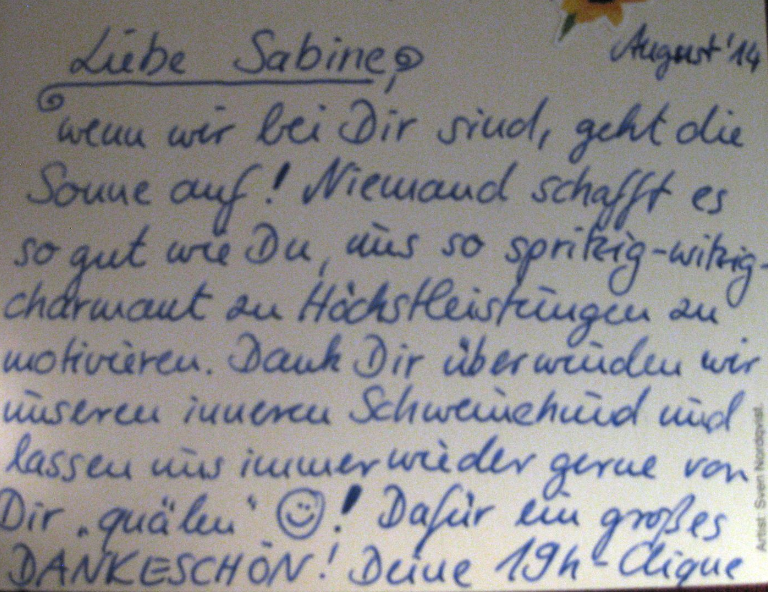 August '14
Liebe Sabine,
wenn wir bei Dir sind, geht die
Sonne auf! Niemand schafft es
so gut wie Du, uns so spritzig-witzig-
charmant zu Höchstleistungen zu
motivieren. Dank Dir überwinden wir
unseren inneren Schweinehund und
lassen uns immer wieder gerne von
Dir „quälen“ ☺! Dafür ein großes
DANKESCHÖN! Deine 19h-Clique
Artist: Sven Nordqvist.